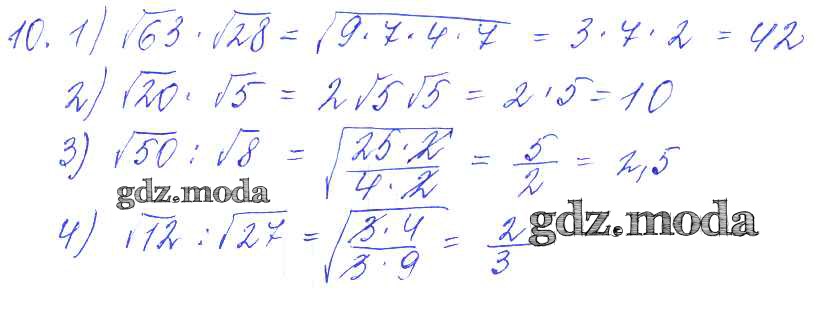 10. 1) √63 · √28 = √(9 · 7 · 4 · 7) = 3 · 7 · 2 = 42
2) √20 · √5 = 2√5√5 = 2 · 5 = 10
3) √50 : √8 = √((25 · 2)/(4 · 2)) = 5/2 = 2,5
gdz.moda
4) √12 : √27 = √((3 · 4)/(3 · 9)) = 2/3
gdz.moda